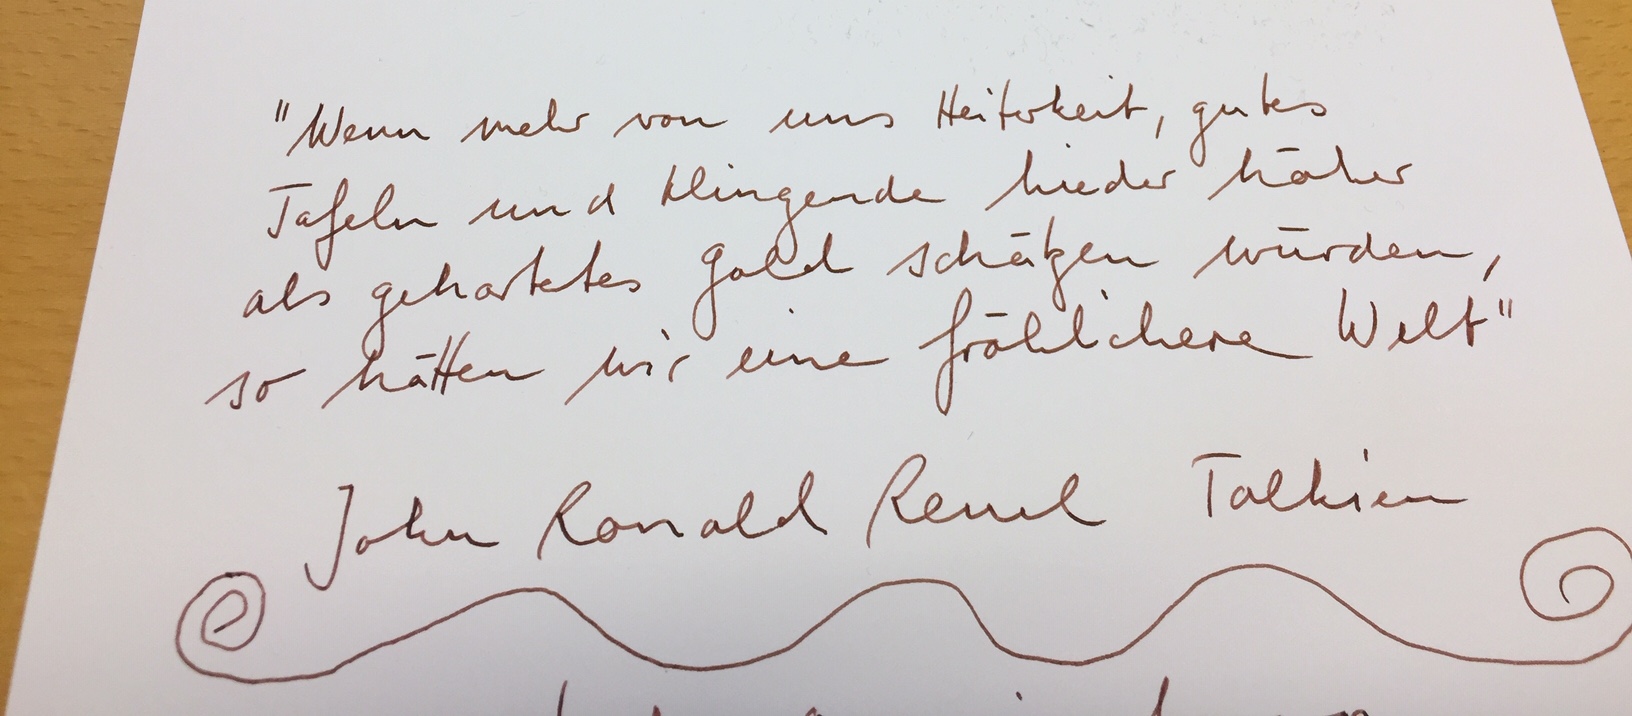 "Wenn mehr von uns Heiterkeit, gutes
Tafeln und klingende Lieder höher
als gehortetes Gold schätzen würden,
so hätten wir eine fröhlichere Welt"
John Ronald Reuel Tolkien